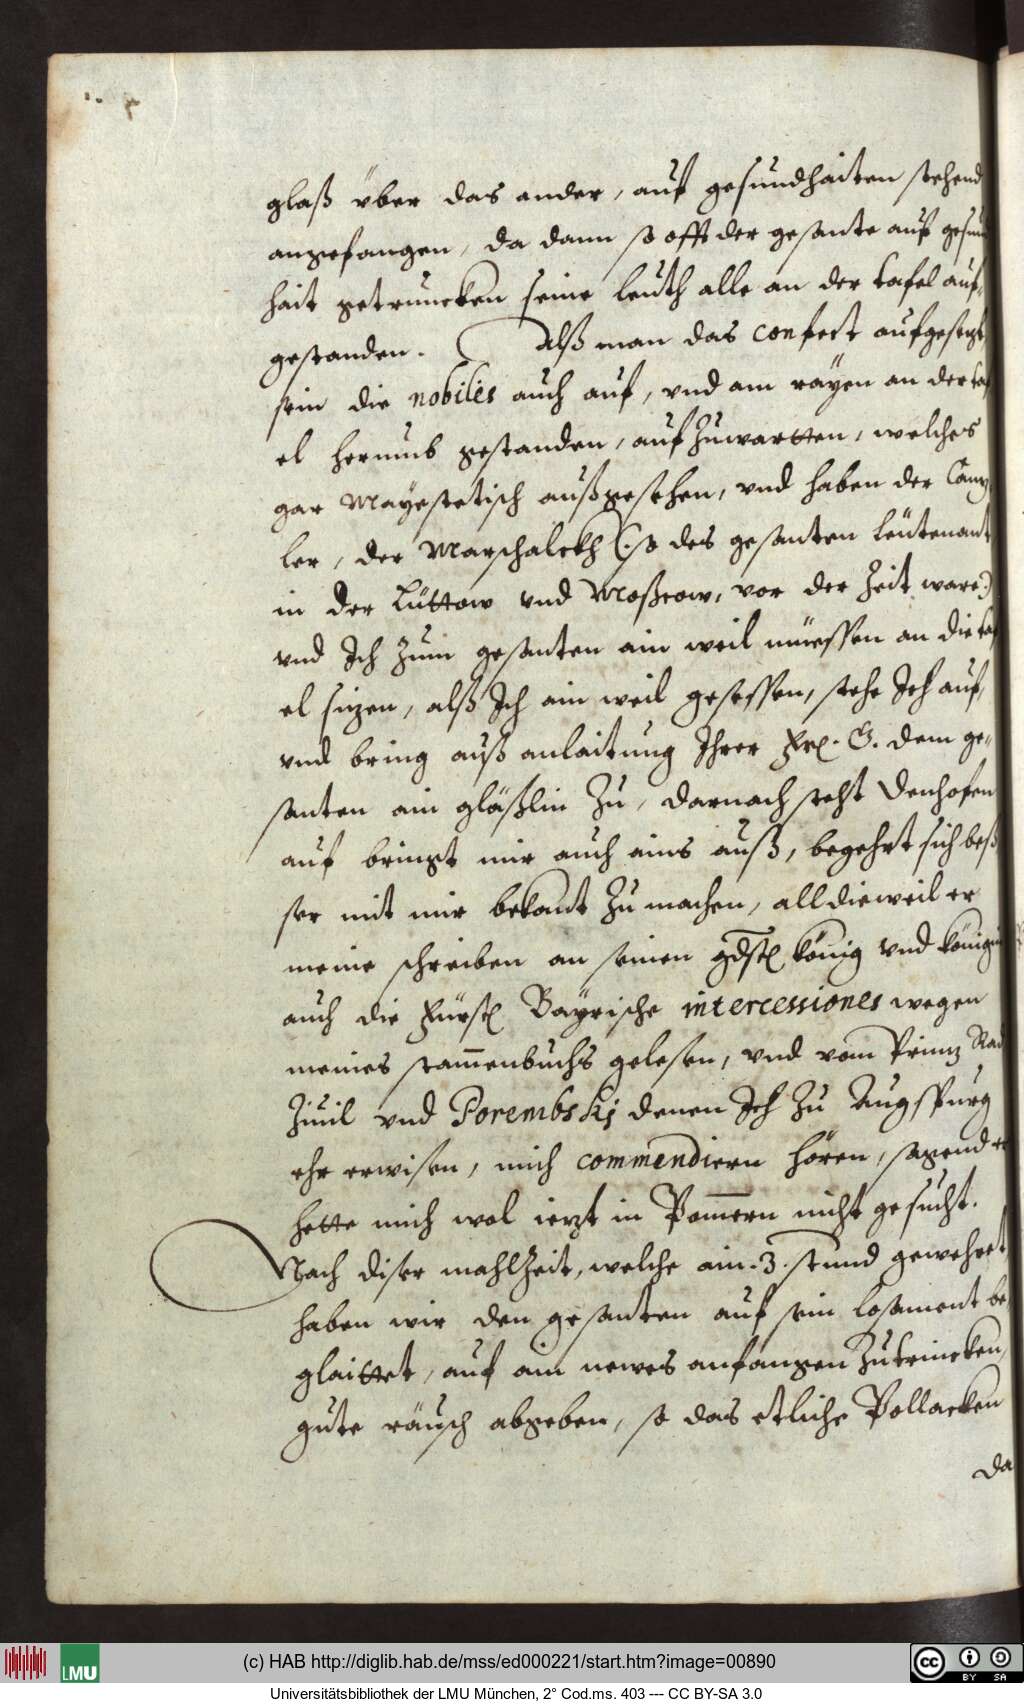 glaß vber das ander, auf gesundhaiten stehend
angefangen, da dann so offt der gesante auf gesun
hait getruncken seine leuth alle an der tafel auf,
gestanden. Alß man das confect aufgesezt
sein die nobiles auch auf, vnd am rayen an der taf
el herumb gestanden, auf Zuwartten, welches
gar Mayestetisch außgesehen, vnd haben der Canz
ler, der Marschalckh (:so des gesanten leütenant
in der Lüttow vnd Moßcow, vor der Zeit ware:)
vnd Ich zum gesanten ain weil müessen an die taf
el sizen, alß Ich ain weil gesessen, stehe Ich auf,
vnd bring auß anlaitung Ihrer Frl. G. dem ge„
santen ain gläßlin Zu, darnach steht Denhofen
auf bringt mir auch ains auß, begehrt sich beß
ser mit mir bekant Zu machen, alldieweil er
meine schreiben an seinen gdstl könig vnd königin
auch die Fürstl Bayrische intercessiones wegen
meines stammenbuchs gelesen, vnd vom Prinz Rad
Ziuil vnd Porembskj denen Ich Zu Augspurg
ehr erwisen, mich commendiern hören, sagend er
hette mich wol iezt in Pommern nicht gesucht.
Nach diser mahlZeit, welche ain .3. stund gewehret,
haben wir den gesanten auf sein losament be,
glaittet, auf ain newes anfangen Zutrincken,
gute räusch abgeben, so das etliche Pollacken
da
(c) HAB http://diglib.hab.de/mss/ed000221/start.htm?image=00890
LMU
cc BY SA
Universitätsbibliothek der LMU München, 2° Cod.ms. 403 --- CC BY-SA 3.0